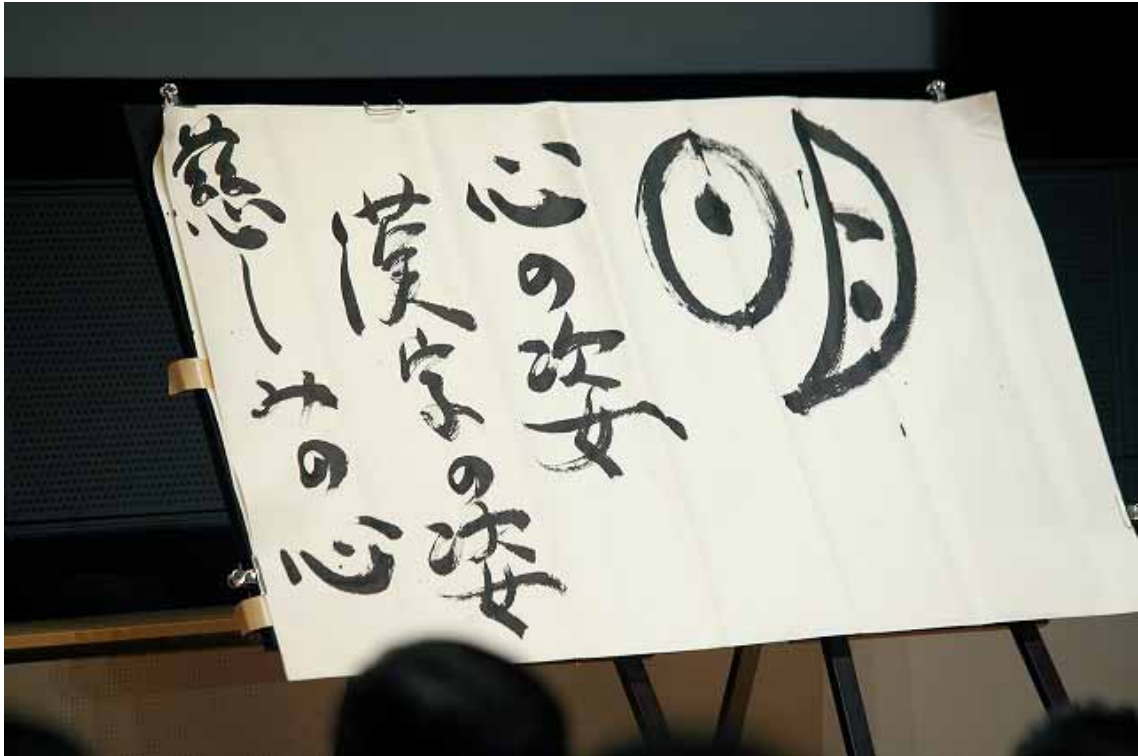 明
心の姿
漢字の姿
慈しみの心